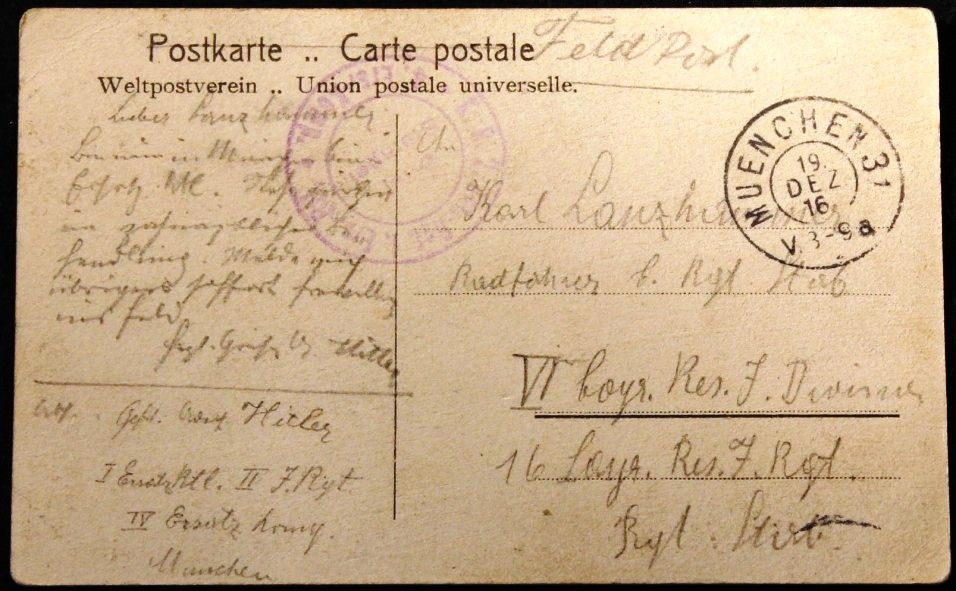 Postkarte .. Carte postale
Weltpostverein .. Union postale universelle.
Feld Post.
MUENCHEN 31
19.
DEZ
16
V. 8-9a
Lieber Lanzhammer,
Bin nun in München beim
Ersatz Btl.
in zahnärztlicher Be-
handlung. Melde mich
übrigens sofort freiwillig
ins Feld
Hitler
Karl Lanzhammer
Radfahrer b. Rgt. Stab
VI bayr. Res. J. Division
16 bayr. Res. J. Rgt.
Rgt. Stab.
Abs. Gefr. Adolf Hitler
I Ersatz Btl. II J. Rgt
IV Ersatz Komp.
München